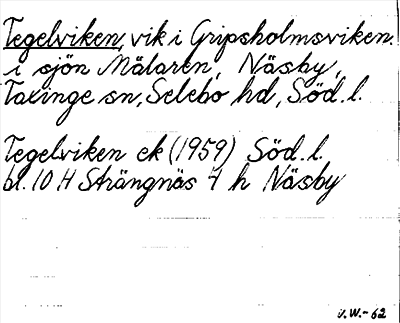 Tegelviken, vik i Gripsholmsviken.
i sjön Mälaren, Näsby,
Taxinge sn, Selebo hd, Söd. l.
Tegelviken ek (1959) Söd. l.
bl. 10 H Strängnäs 7 h Näsby
J.W.-62